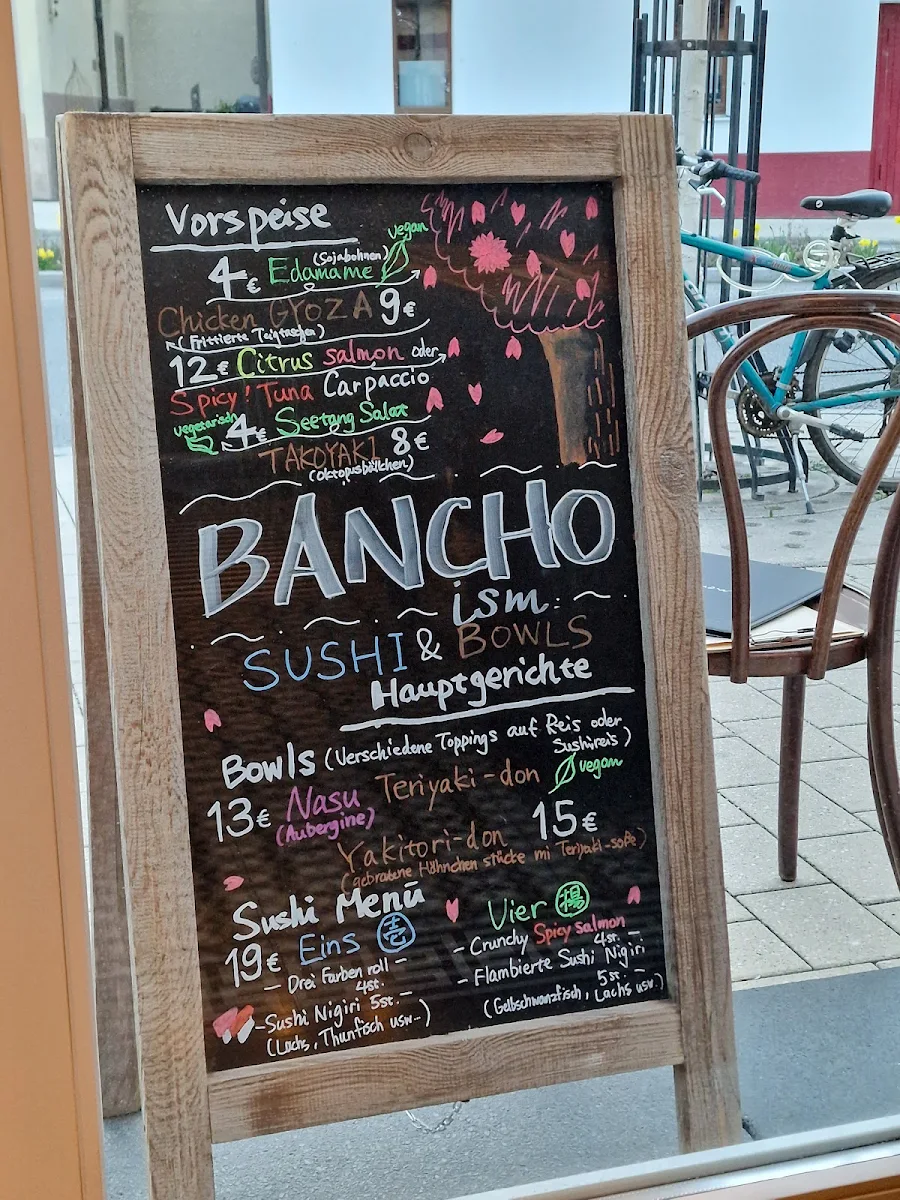 Vorspeise
vegan
(Sojabohnen)
4€ Edamame
Chicken GYOZA 9€
(Frittierte Teigtaschen)
12€ Citrus salmon oder
Spicy! Tuna Carpaccio
vegetarisch
4€ Seetang Salat
TAKOYAKI 8€
(Oktopusbällchen)
BANCHO
ism
SUSHI & BOWLS
Hauptgerichte
Bowls (Verschiedene Toppings auf Reis oder
Sushireis)
13€ Nasu Teriyaki-don vegan
(Aubergine)
15€
Yakitori-don
(gebratene Hähnchen stücke mi Teriyaki-soße)
Sushi Menü
19€ Eins 壱
- Drei Farben roll -
4st.
- Sushi Nigiri 5st. -
(Lachs, Thunfisch usw..)
Vier 揚
- Crunchy Spicy salmon
4st. -
- Flambierte Sushi Nigiri
5st. -
(Gelbschwanzfisch, Lachs usw.)